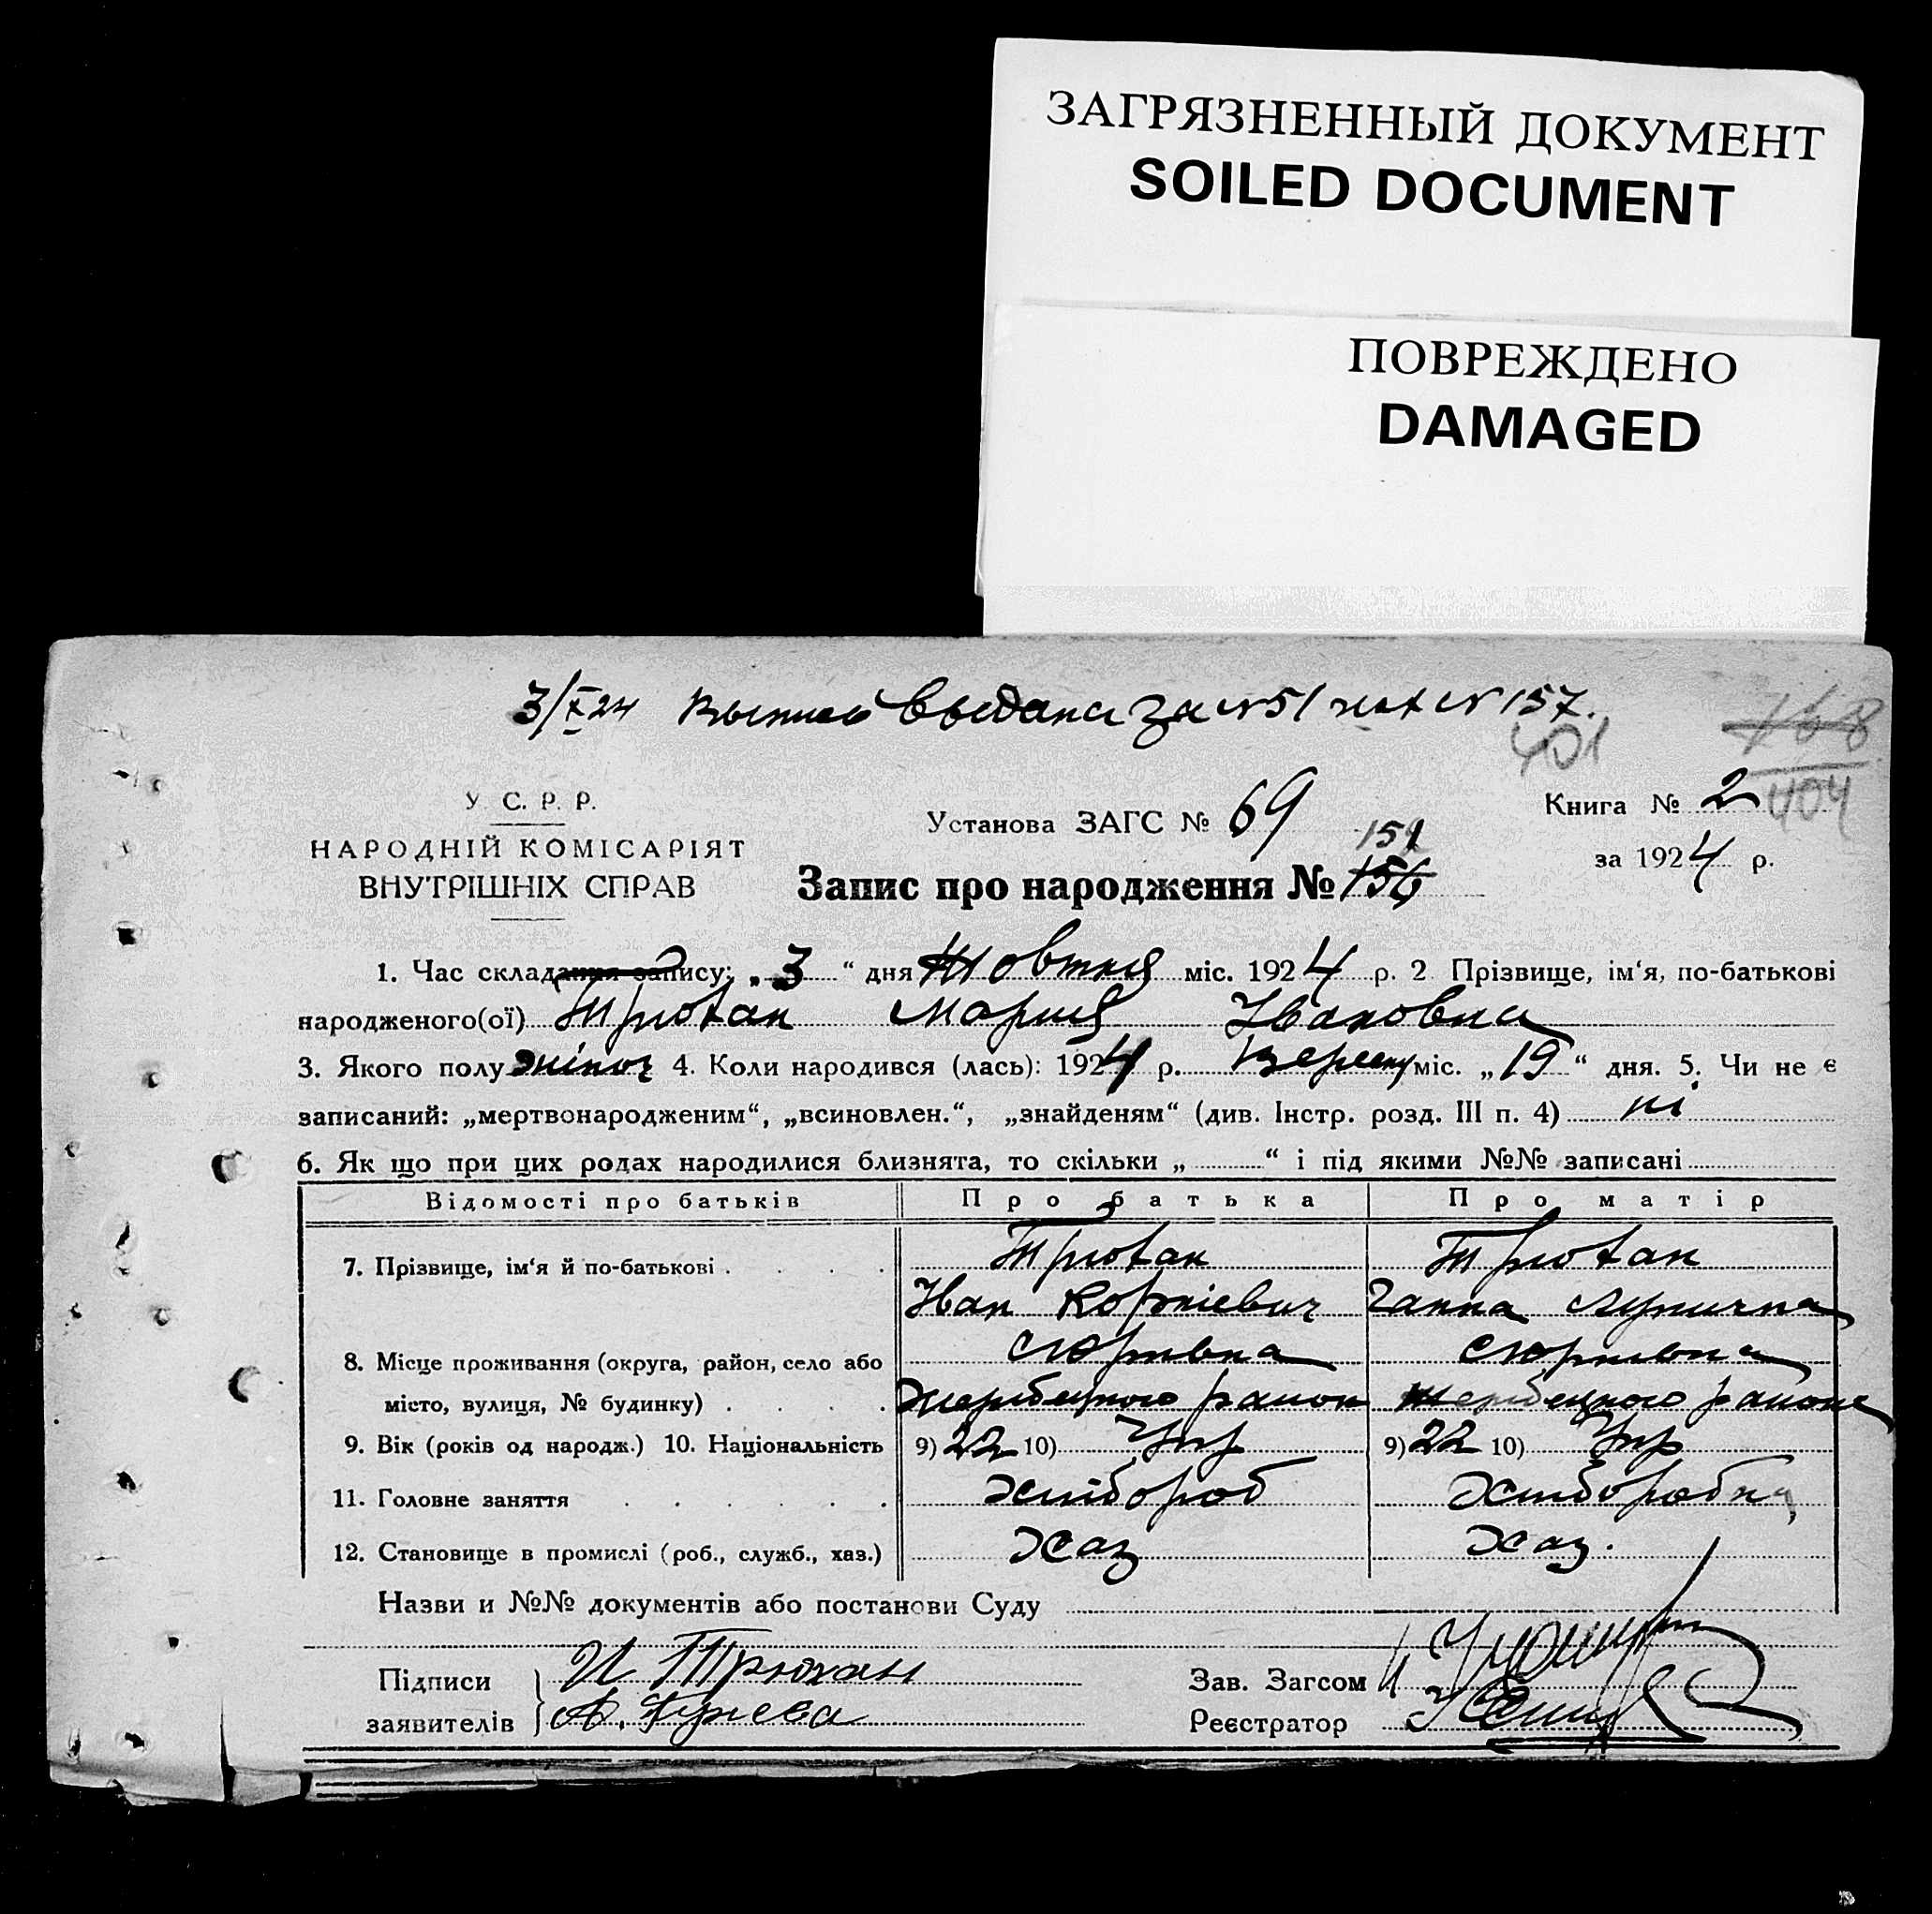 ЗАГРЯЗНЕННЫЙ ДОКУМЕНТ
SOILED DOCUMENT
ПОВРЕЖДЕНО
DAMAGED
3/X 24 выпись выдана за №51 кв №157.
401
768
404
У. С. Р. Р.
НАРОДНІЙ КОМІСАРІЯТ
ВНУТРІШНІХ СПРАВ
Установа ЗАГС № 69
Книга № 2
за 1924 р.
Запис про народження № 156
1. Час складання запису: „3“ дня Жовтня міс. 1924 р. 2 Прізвище, ім‘я, по-батькові
народженого(ої) Трюхан Мария Ивановна
3. Якого полу жіноч 4. Коли народився (лась): 1924 р. Вересня міс. „19“ дня. 5. Чи не є
записаний: „мертвонародженим“, „всиновлен.“, „знайденям“ (див. Інстр. розд. III п. 4) ні
6. Як що при цих родах народилися близнята, то скільки „ “ і під якими №№ записані
Відомості про батьків Про батька Про матір
7. Прізвище, ім‘я й по-батькові Трюхан Трюхан
Иван Корнієвич Ганна
8. Місце проживання (округа, район, село або
місто, вулиця, № будинку) Жеребецкого району Жеребецкого району
9. Вік (років од народж.) 10. Національність 9) 22 10) Укр 9) 22 10) Укр
11. Головне заняття хлібороб хліборобка
12. Становище в промислі (роб., служб., хаз.) Хаз Хаз.
Назви и №№ документів або постанови Суду
Підписи
заявителів
И Трюхан
Зав. Загсом
Реєстратор